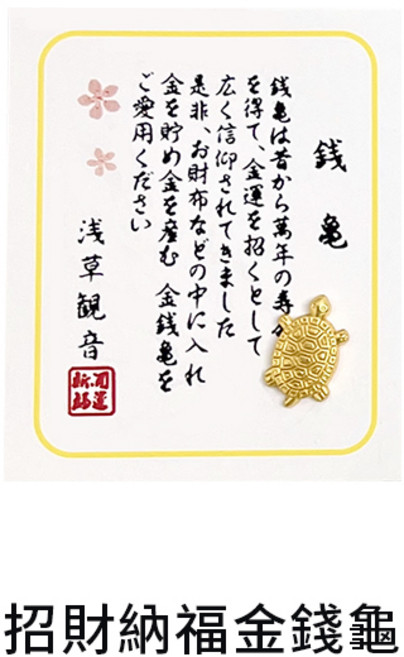 銭亀
銭亀は昔から萬年の寿
を得て、金運を招くとして
広く信仰されてきました
是非、お財布などの中に入れ
金を貯め金を産む 金銭亀を
ご愛用ください
浅草観音
開運
祈福
招財納福金錢龜